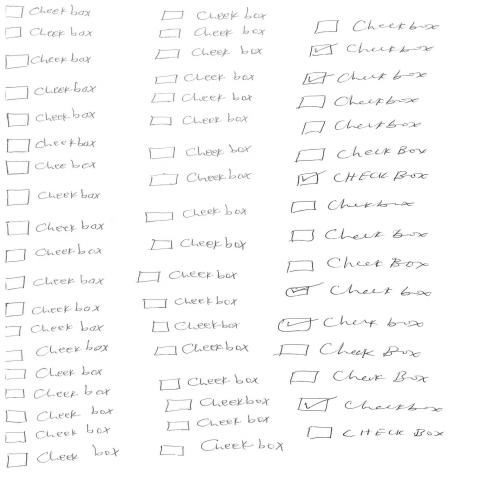 Check box
Check box
Checkbox
Check box
Check box
Checkbox
Chee box
Check box
Check box
Check box
Check box
Check box
Check box
Check box
Check box
Check box
Check box
Check box
Check box
Check box
Check box
Check box
Check box
Check box
Check box
Check box
Check box
Check box
Check box
Check box
Check box
Checkbox
Checkbox
Check box
Checkbox
Check box
Check box
Check box
Check box
Check box
Check box
Check box
Check Box
CHECK Box
Check box
Check Box
Check Box
Check box
Check box
Check Box
Check Box
Checkbox
CHECK Box